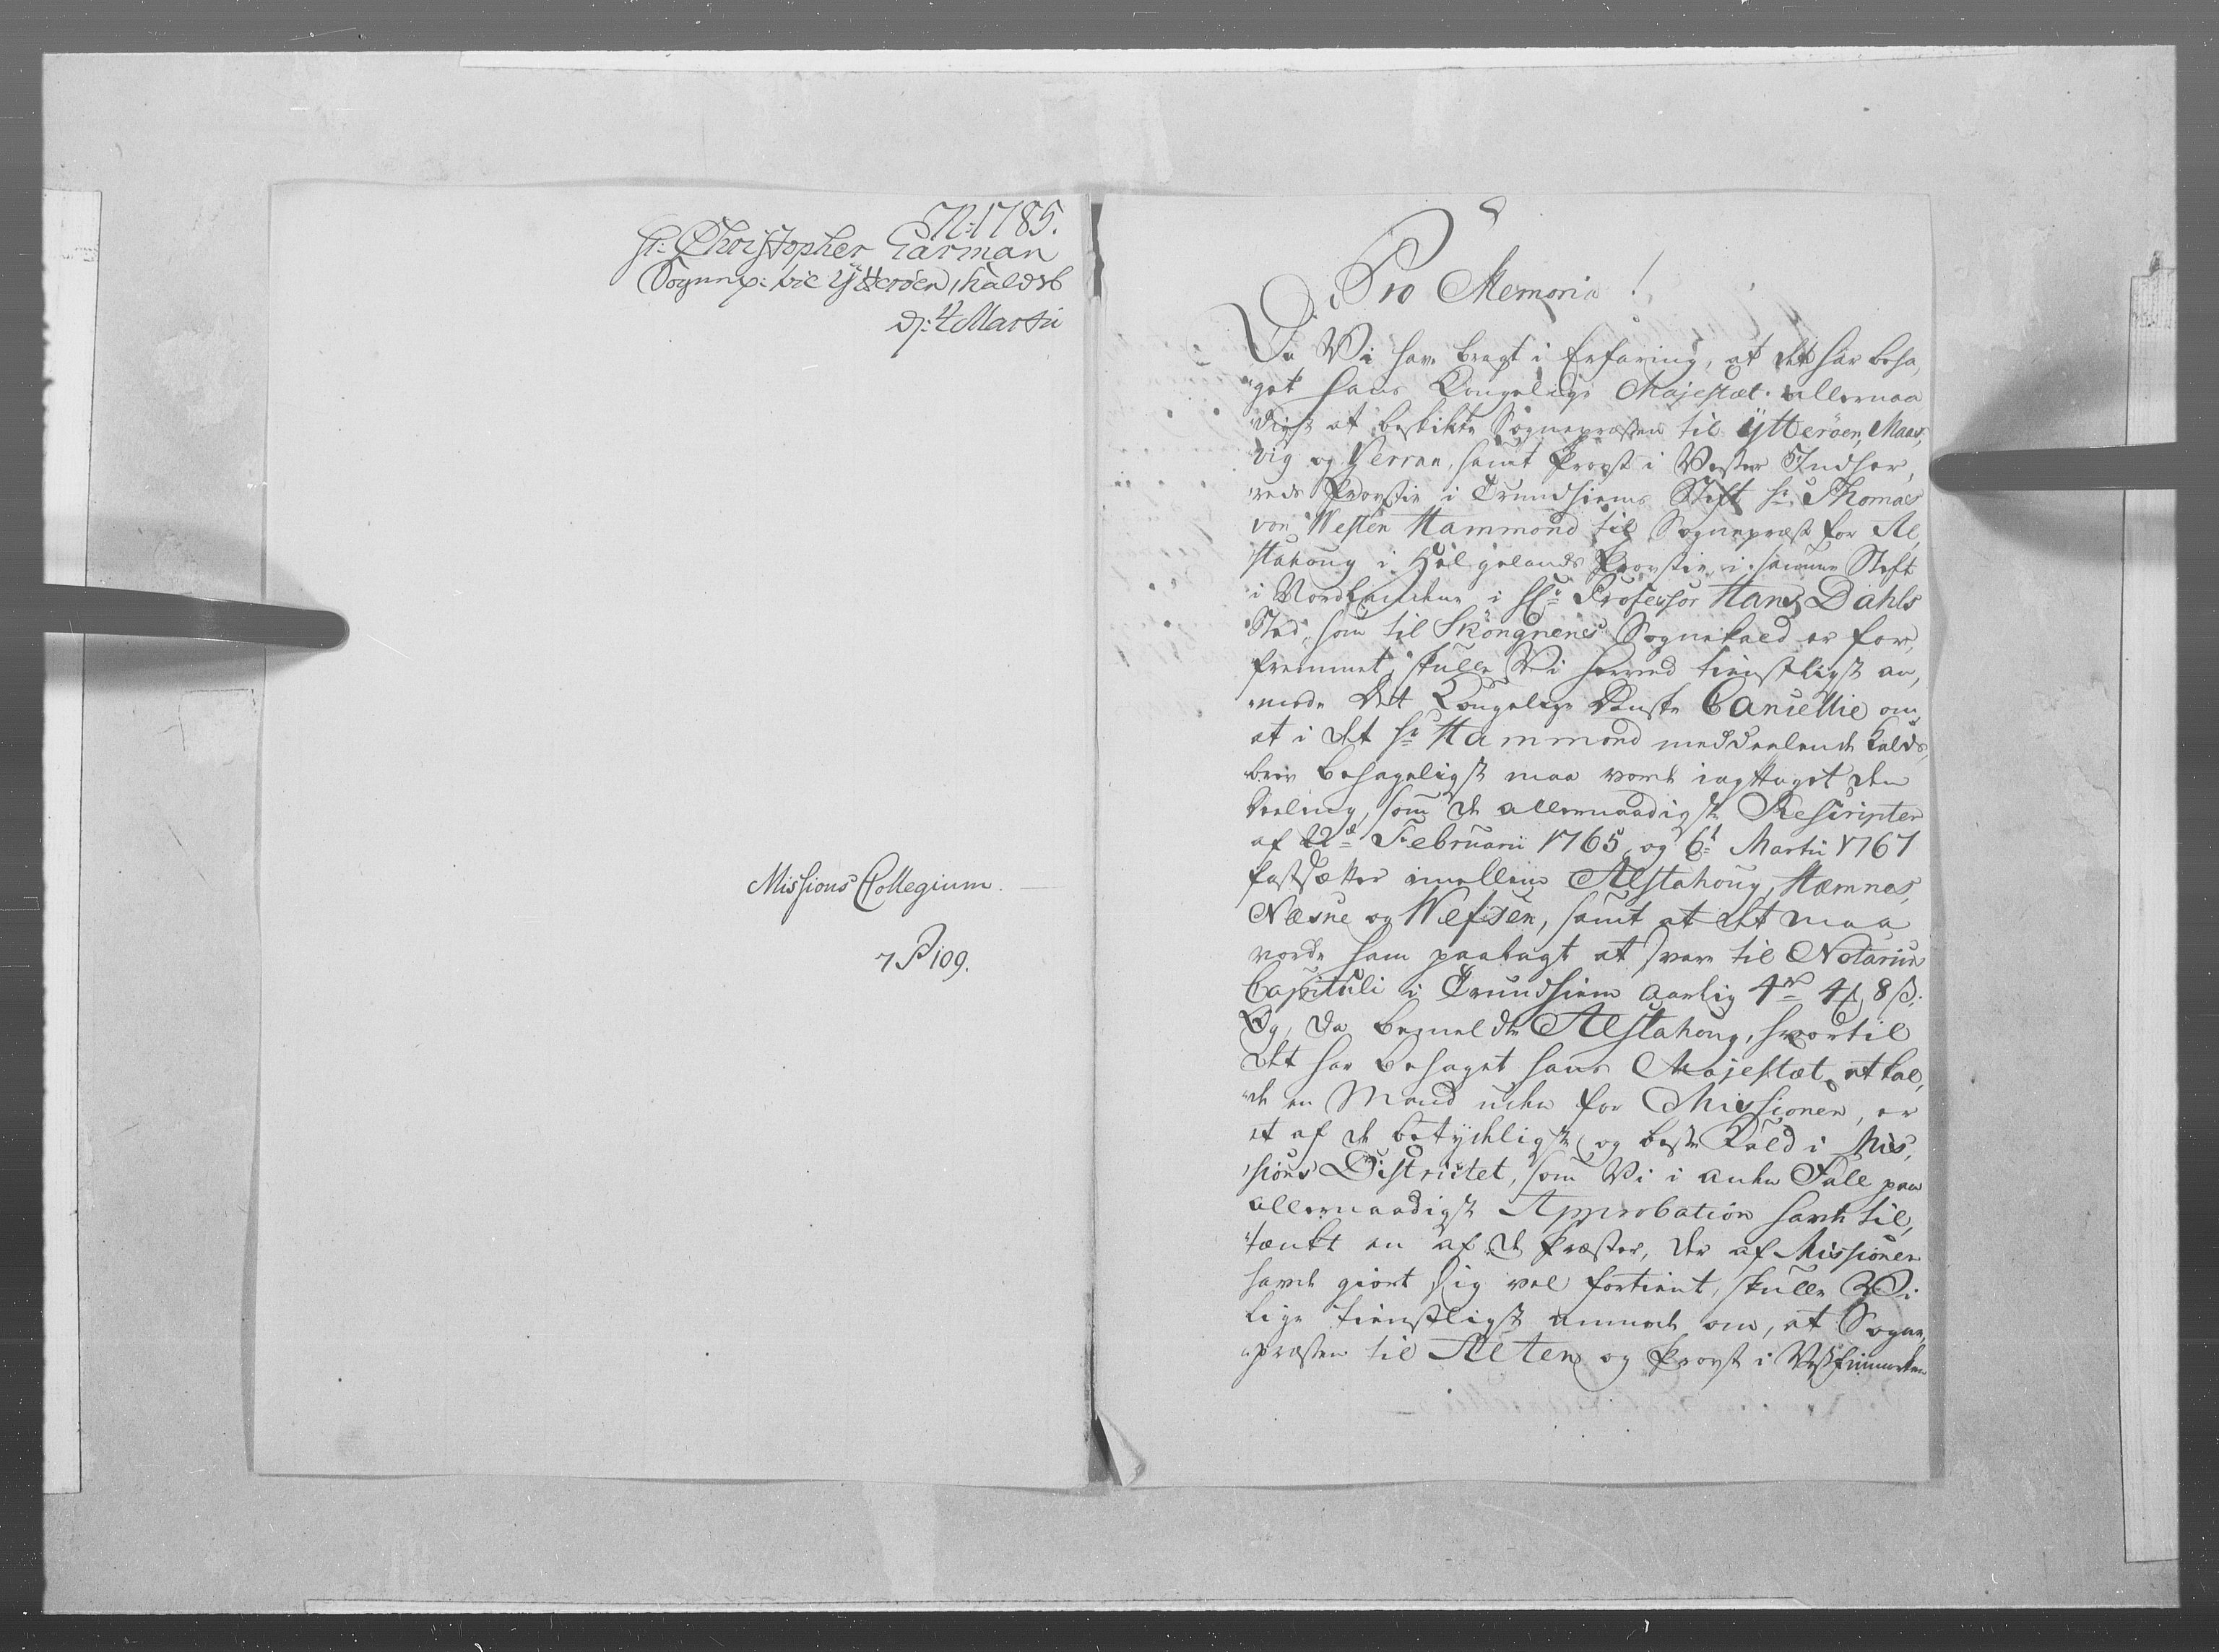 N: 1785.
Hr: Christopher Garman
Sognepr: til Ytterøen, Kaldsb
d: 4 Martii
Missions Collegium.
7 P 109.
Pro Memoria!
Da Vi have bragt i Erfaring, at det har beha,
get Hans Kongelige Majestæt allernaa
digst at beskikke Sognepræsten til Ytterøen, Maas,
vig og Verran, samt Provst i Wester Indher,
reds Provstie i Trundhiems Stift Hr: Thomas
von Westen Hammond til Sognepræst for Al,
stahoug i Helgelands Provstie i samme Stift
i Nordlandene i Hr: Professor Hans Dahls
Stæd, som til Skongnenes Sognekald er for,
fremmet, skulle Vi herved tienstligst an,
mode Det Kongelige Danske Cancellie om,
at i det Hr: Hammond meddeelende Kalds,
brev behageligst maa vorde iagttaget den
Deeling, som de allernaadigste Rescripter
af 22d Februarii 1765 og 6t Martii 1767
fastsætter imellem Alstahoug, Hæmnes,
Næsne og Wefsen, samt at det maa
vorde ham paalagt at svare til Notarius
Capituli i Trundhiem aarlig 4rd 4 mk 8 ß:
Og, da bemeldte Alstahoug, hvortil
det har behaget Hans Majestæt at kal,
de en Mand uden for Missionen, er
et af de betydeligste og beste Kald i Mis,
sions Districtet, som Vi i anden Fald paa
allernaadigst Approbation havde til,
tænkt en af de Præster, der af Missionen
havde giort sig vel fortient, skulle Vi
lige tienstligst anmode om, at Sogne,
præsten til Alten og Provst i Vestfinmarken